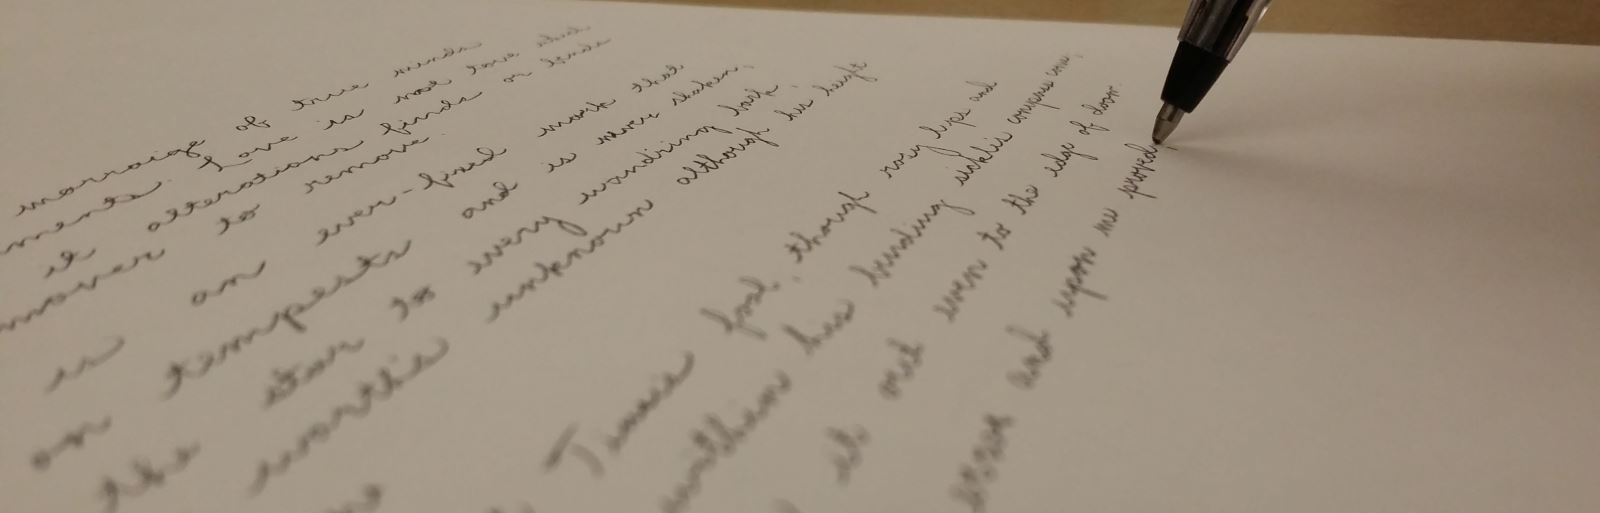 marraige of true minds
ments. Love is not love which
it alterations finds or bends
mover to remove.
is an ever-fixed mark that
on tempests and is never shaken,
the star to every wandring bark
worths unknown although his height
Times fool, though rosy lips and
within his bending sickles compass come,
it out even to the edge of doom.
error and upon me proved